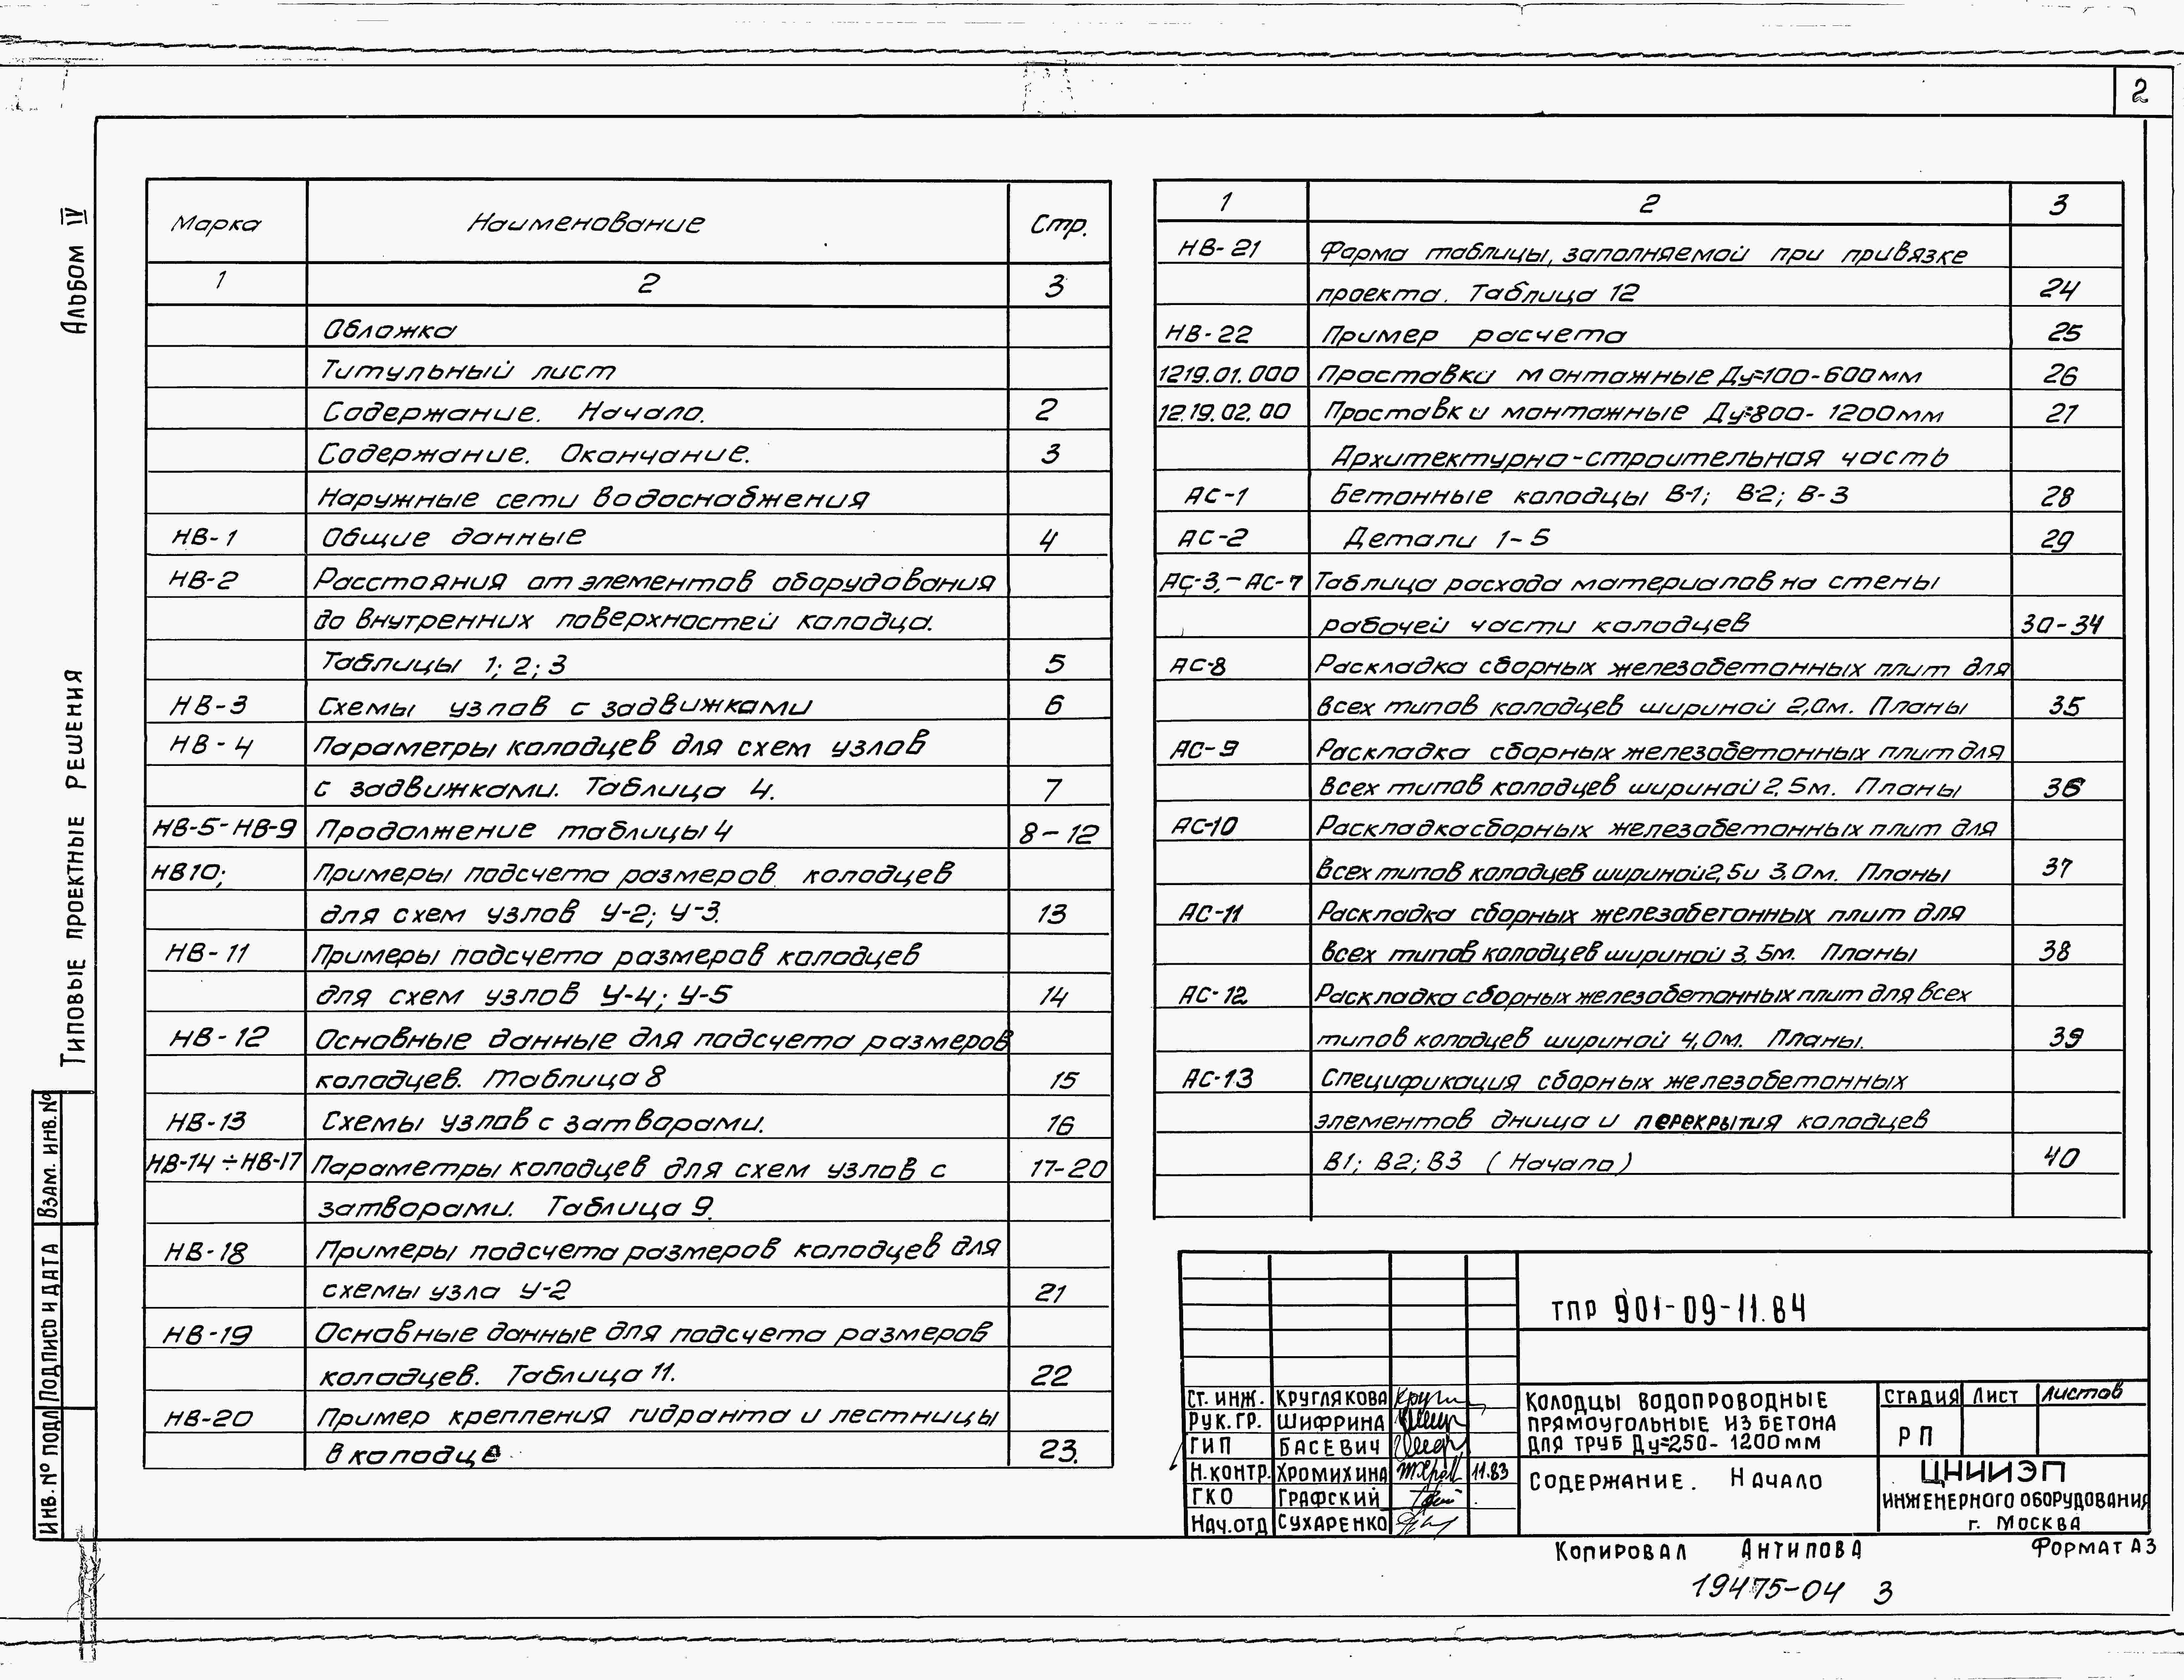 2
Альбом IV
Типовые проектные решения
Взам. инв. №
Подпись и дата
Инв. № подл
Марка Наименование Стр.
1 2 3
Обложка
Титульный лист
Содержание. Начало. 2
Содержание. Окончание. 3
Наружные сети водоснабжения
НВ-1 Общие данные 4
НВ-2 Расстояния от элементов оборудования
до внутренних поверхностей колодца.
Таблицы 1; 2; 3 5
НВ-3 Схемы узлов с задвижками 6
НВ-4 Параметры колодцев для схем узлов
с задвижками. Таблица 4. 7
НВ-5-НВ-9 Продолжение таблицы 4 8-12
НВ10; Примеры подсчета размеров колодцев
для схем узлов У-2; У-3. 13
НВ-11 Примеры подсчета размеров колодцев
для схем узлов У-4; У-5 14
НВ-12 Основные данные для подсчета размеров
колодцев. Таблица 8 15
НВ-13 Схемы узлов с затворами. 16
НВ-14÷НВ-17 Параметры колодцев для схем узлов с 17-20
затворами. Таблица 9.
НВ-18 Примеры подсчета размеров колодцев для
схемы узла У-2 21
НВ-19 Основные данные для подсчета размеров
колодцев. Таблица 11. 22
НВ-20 Пример крепления гидранта и лестницы
в колодце 23.
1 2 3
НВ-21 Форма таблицы, заполняемой при привязке
проекта. Таблица 12 24
НВ-22 Пример расчета 25
1219.01.000 Проставки монтажные Ду=100-600мм 26
12.19.02.00 Проставки монтажные Ду=800-1200мм 27
Архитектурно-строительная часть
АС-1 Бетонные колодцы В-1; В-2; В-3 28
АС-2 Детали 1-5 29
АС-3,-АС-7 Таблица расхода материалов на стены
рабочей части колодцев 30-34
АС-8 Раскладка сборных железобетонных плит для
всех типов колодцев шириной 2,0м. Планы 35
АС-9 Раскладка сборных железобетонных плит для
всех типов колодцев шириной 2,5м. Планы 36
АС-10 Раскладка сборных железобетонных плит для
всех типов колодцев шириной 2,5 и 3,0м. Планы 37
АС-11 Раскладка сборных железобетонных плит для
всех типов колодцев шириной 3,5м. Планы 38
АС-12 Раскладка сборных железобетонных плит для всех
типов колодцев шириной 4,0м. Планы. 39
АС-13 Спецификация сборных железобетонных
элементов днища и перекрытия колодцев
В1; В2; В3 (Начало) 40
ТПР 901-09-11.84
Ст. инж. Круглякова
Рук. гр. Шифрина
ГИП Басевич
Н.контр. Хромихина 11.83
ГКО Графский
Нач.отд Сухаренко
Колодцы водопроводные
прямоугольные из бетона
для труб Ду=250-1200мм
Стадия Лист Листов
РП
Содержание. Начало
ЦНИИЭП
инженерного оборудования
г. Москва
Копировал Антипова Формат А3
19475-04 3